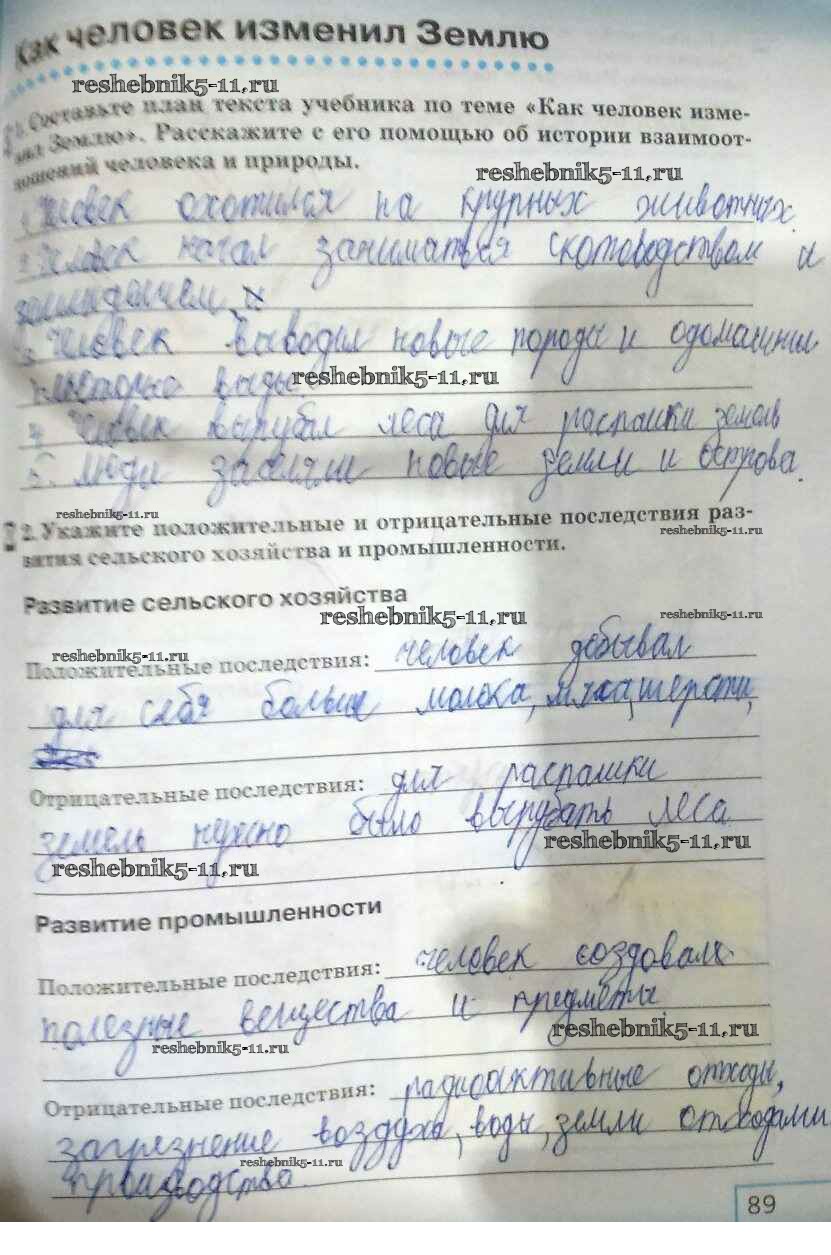 Как человек изменил Землю
reshebnik5-11.ru
1. Составьте план текста учебника по теме «Как человек изме-
нил Землю». Расскажите с его помощью об истории взаимоот-
ношений человека и природы.
reshebnik5-11.ru
1. Человек охотился на крупных животных.
2. Человек начал заниматься скотоводством и
земледелием
3. Человек выводил новые породы и одомашнил
несколько виды
reshebnik5-11.ru
4. Человек вырубал леса для распашки земель
5. Люди заселяли новые земли и острова.
reshebnik5-11.ru
2. Укажите положительные и отрицательные последствия раз-
reshebnik5-11.ru
вития сельского хозяйства и промышленности.
Развитие сельского хозяйства
reshebnik5-11.ru
reshebnik5-11.ru
reshebnik5-11.ru
Положительные последствия: человек добывал
для себя больше молока, мяса, шерсти,
Отрицательные последствия: для распашки
земель нужно было вырубать леса
reshebnik5-11.ru
reshebnik5-11.ru
Развитие промышленности
Положительные последствия: человек создовал
полезные вещества и предметы
reshebnik5-11.ru
reshebnik5-11.ru
Отрицательные последствия: радиоактивные отходы,
загрязнение воздуха, воды, земли отходами
reshebnik5-11.ru
производства.
89